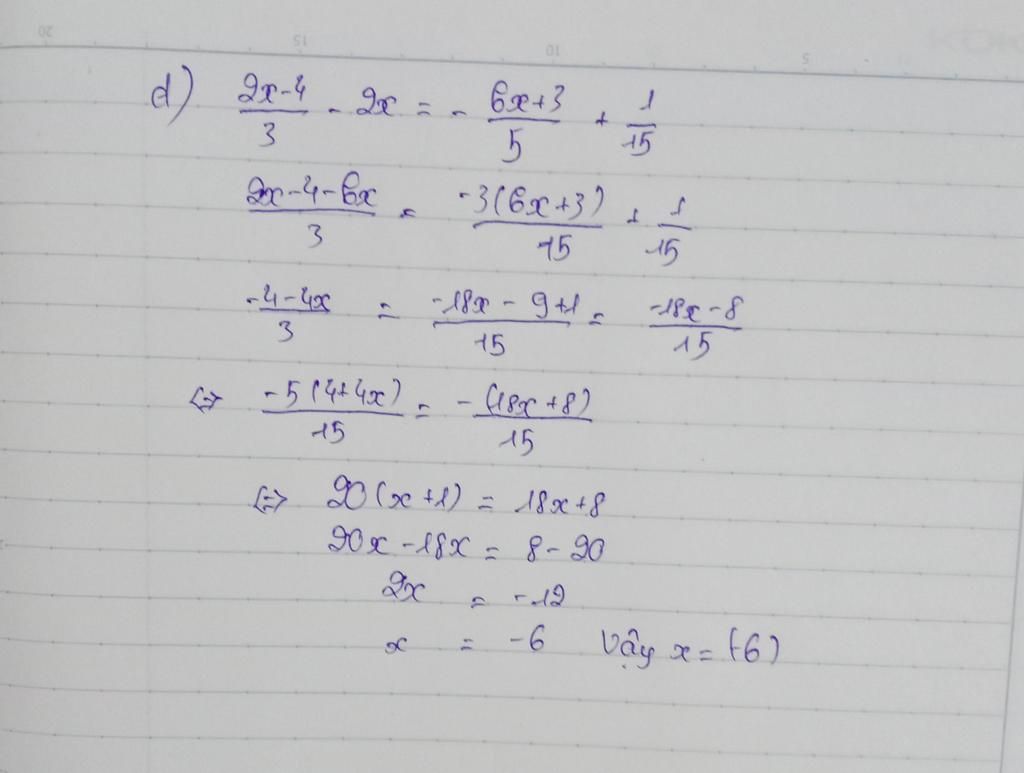 20 15 10 5
d) (2x-4)/3 - 2x = - (6x+3)/5 + 1/15
(2x-4-6x)/3 = -3(6x+3)/15 + 1/15
(-4-4x)/3 = (-18x - 9+1)/15 = (-18x-8)/15
<=> -5(4+4x)/15 = -(18x+8)/15
<=> 20(x+1) = 18x+8
20x-18x = 8-20
2x = -12
x = -6 Vậy x = (-6)